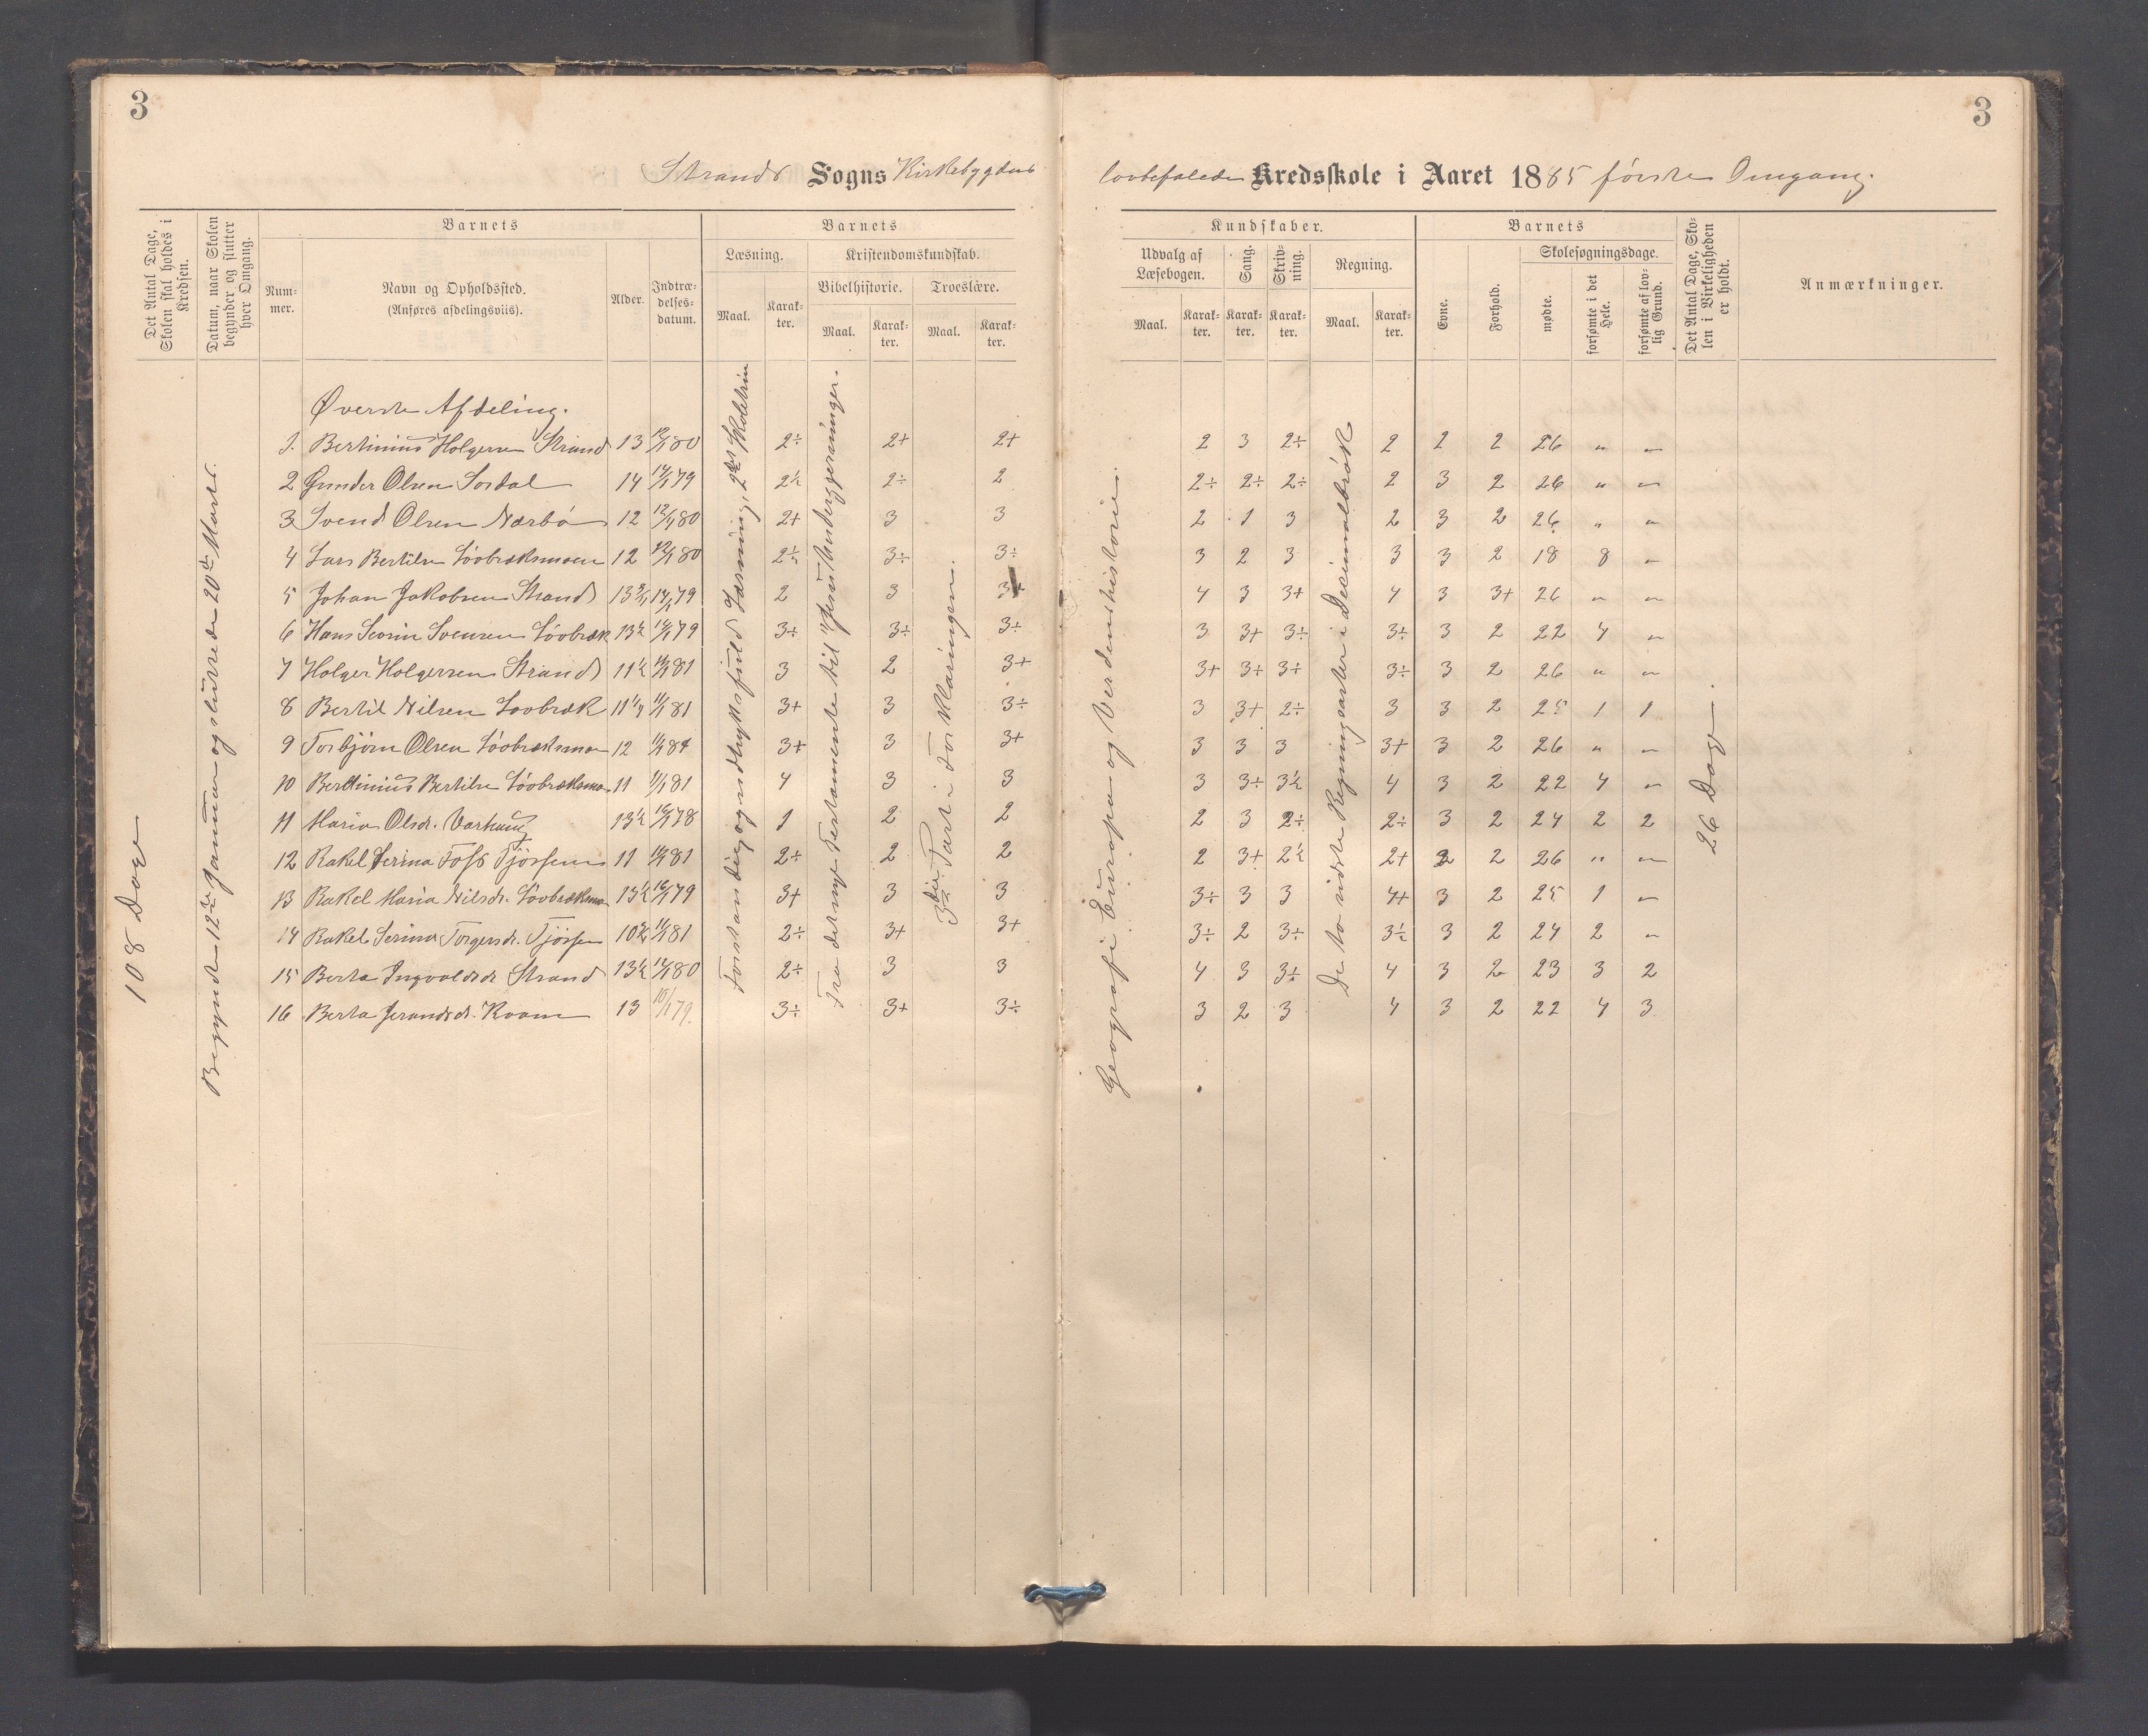 3
3
Strands Sogns Kirkebygdens
lovbefalede Kredsskole i Aaret 1885 første Omgang.
Det Antal Dage, Skolen skal holdes i Kredsen.
Datum, naar Skolen begynder og slutter hver Omgang.
Barnets
Nummer.
Navn og Opholdssted.
(Anføres afdelingsviis).
Alder.
Indtrædelses-datum.
Barnets
Læsning.
Maal.
Karakter.
Kristendomskundskab.
Bibelhistorie.
Maal.
Karakter.
Troeslære.
Maal.
Karakter.
Kundskaber.
Udvalg af Læsebogen.
Maal.
Karakter.
Sang.
Karakter.
Skrivning.
Karakter.
Regning.
Maal.
Karakter.
Barnets
Evne.
Forhold.
Skolesøgningsdage.
mødte.
forsømte i det Hele.
forsømte af lovlig Grund.
Det Antal Dage, Skolen i Virkeligheden er holdt.
Anmærkninger.
108 Dage
Begyndte 12te Januar og sluttede 20de Marts.
Forstandig og udtryksfuld Læsning, 2det Skoletrin
Fra det nye Testamente til "Jesu Undergjerninger.
3die Part i Forklaringen.
Geografi: Europa og Verdenshistorie.
De to sidste Regningsarter i Decimalbrøk
26 Dage
Øverste Afdeling.
1. Bertinius Holgersen Strand 13 12/1 80 2÷ 2+ 2+ 2 3 2÷ 2 2 2 26 " "
2 Gunder Olsen Sordal 14 14/1 79 2½ 2÷ 2 2÷ 2÷ 2÷ 2 3 2 26 " "
3 Svend Olsen Nærbø 12 12/1 80 2+ 3 3 2 1 3 2 3 2 26 " "
4 Lars Bertilsen Løvbræksmoen 12 12/1 80 2½ 3÷ 3÷ 3 2 3 3 3 2 18 8 "
5 Johan Jakobsen Strand 13 14/1 79 2 3 3+ 4 3 3+ 4 3 3+ 26 " "
6 Hans Severin Svensen Løvbræk 13½ 14/1 79 3÷ 3÷ 3÷ 3 3+ 3÷ 3÷ 3 2 22 4 "
7 Holger Holgersen Strand 11½ 11/1 81 3 2 3+ 3+ 3+ 3÷ 3÷ 3 2 26 " "
8 Bertil Nilsen Løvbræk 11¼ 11/1 81 3+ 3 3÷ 3 3+ 2÷ 3 3 2 25 1 1
9 Torbjørn Olsen Løvbræksmoe 12 3+ 3 3+ 3 3 3 3+ 3 2 26 " "
10 Bertinius Bertilsen Løvbræksmo 11 11/1 81 4 3 3 3 3÷ 3½ 4 3 2 22 4 "
11 Maria Olsdr. Varhaug 13½ 16/1 78 1 2 2 2 3 2÷ 2÷ 3 2 24 2 2
12 Rakel Serina Foss Tjøssem 11 11/1 81 2÷ 2 2 2 3+ 2½ 2+ 2 2 26 " "
13 Rakel Maria Nilsdr. Løvbræksmo 13½ 16/1 79 3+ 3 3 3÷ 3 3 4+ 3 2 25 1 "
14 Rakel Serina Torgersdr. Tjøssem 10¾ 11/1 81 2÷ 3+ 3+ 3÷ 2 3÷ 3½ 3 2 24 2 "
15 Berta Ingvaldsdr. Strand 13½ 12/1 80 2÷ 3 3 4 3 3÷ 4 3 2 23 3 2
16 Berta Jerandsdr. Kvam 13 10/1 79. 3÷ 3+ 3÷ 3 2 3 4 3 2 22 4 3